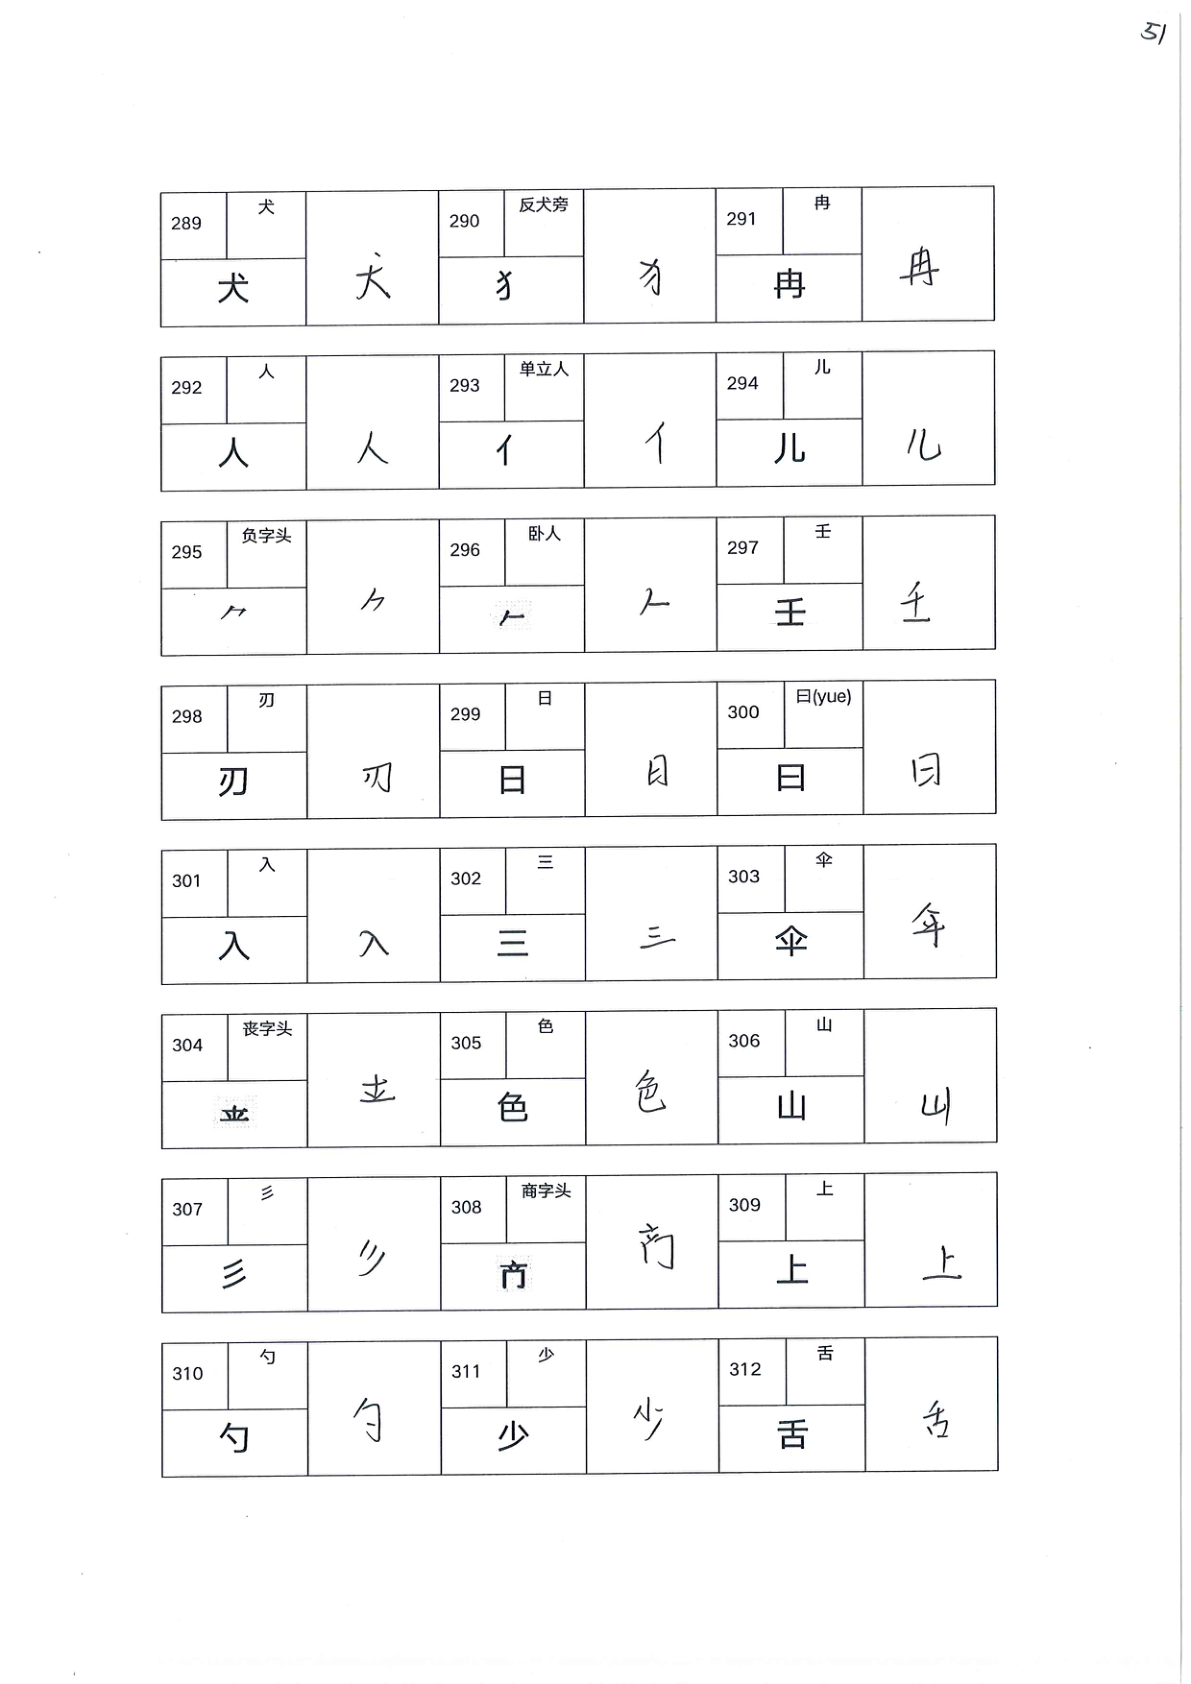 51
289 犬 犬 犬 290 反犬旁 犭 犭 291 冉 冉 冉
292 人 人 人 293 单立人 亻 亻 294 儿 儿 儿
295 负字头 ⺈ ⺈ 296 卧人 𠂉 𠂉 297 壬 壬 壬
298 刃 刃 刃 299 日 日 日 300 曰(yue) 曰 曰
301 入 入 入 302 三 三 三 303 伞 伞 伞
304 丧字头 305 色 色 色 306 山 山 山
307 彡 彡 彡 308 商字头 309 上 上 上
310 勺 勺 勺 311 少 少 少 312 舌 舌 舌